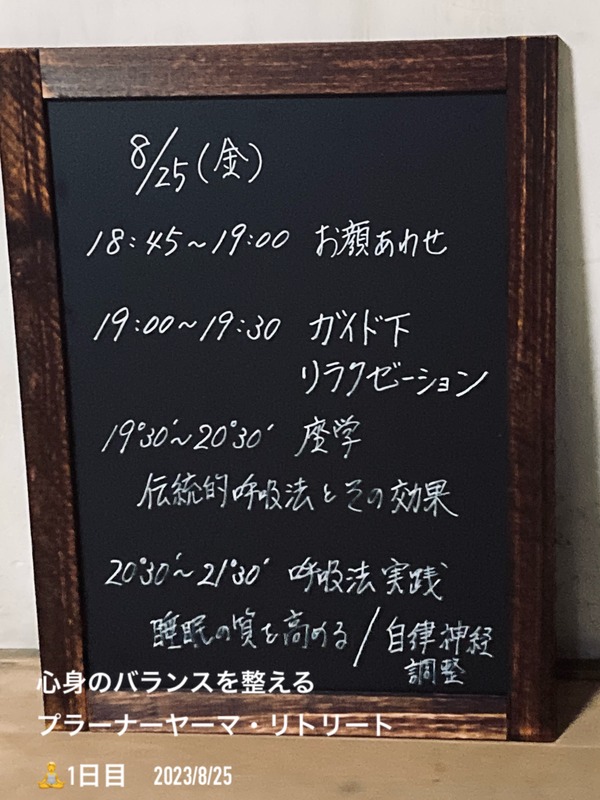 8/25(金)
18:45~19:00 お顔あわせ
19:00~19:30 ガイド下
リラクゼーション
19°30′~20°30′ 座学
伝統的呼吸法とその効果
20°30′~21°30′ 呼吸法実践
睡眠の質を高める/自律神経
調整
心身のバランスを整える
プラーナーヤーマ・リトリート
🧘1日目 2023/8/25